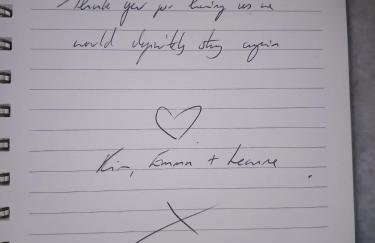 Thank you for having us we
would definitely stay again
Kim, Emma + Leanne
X